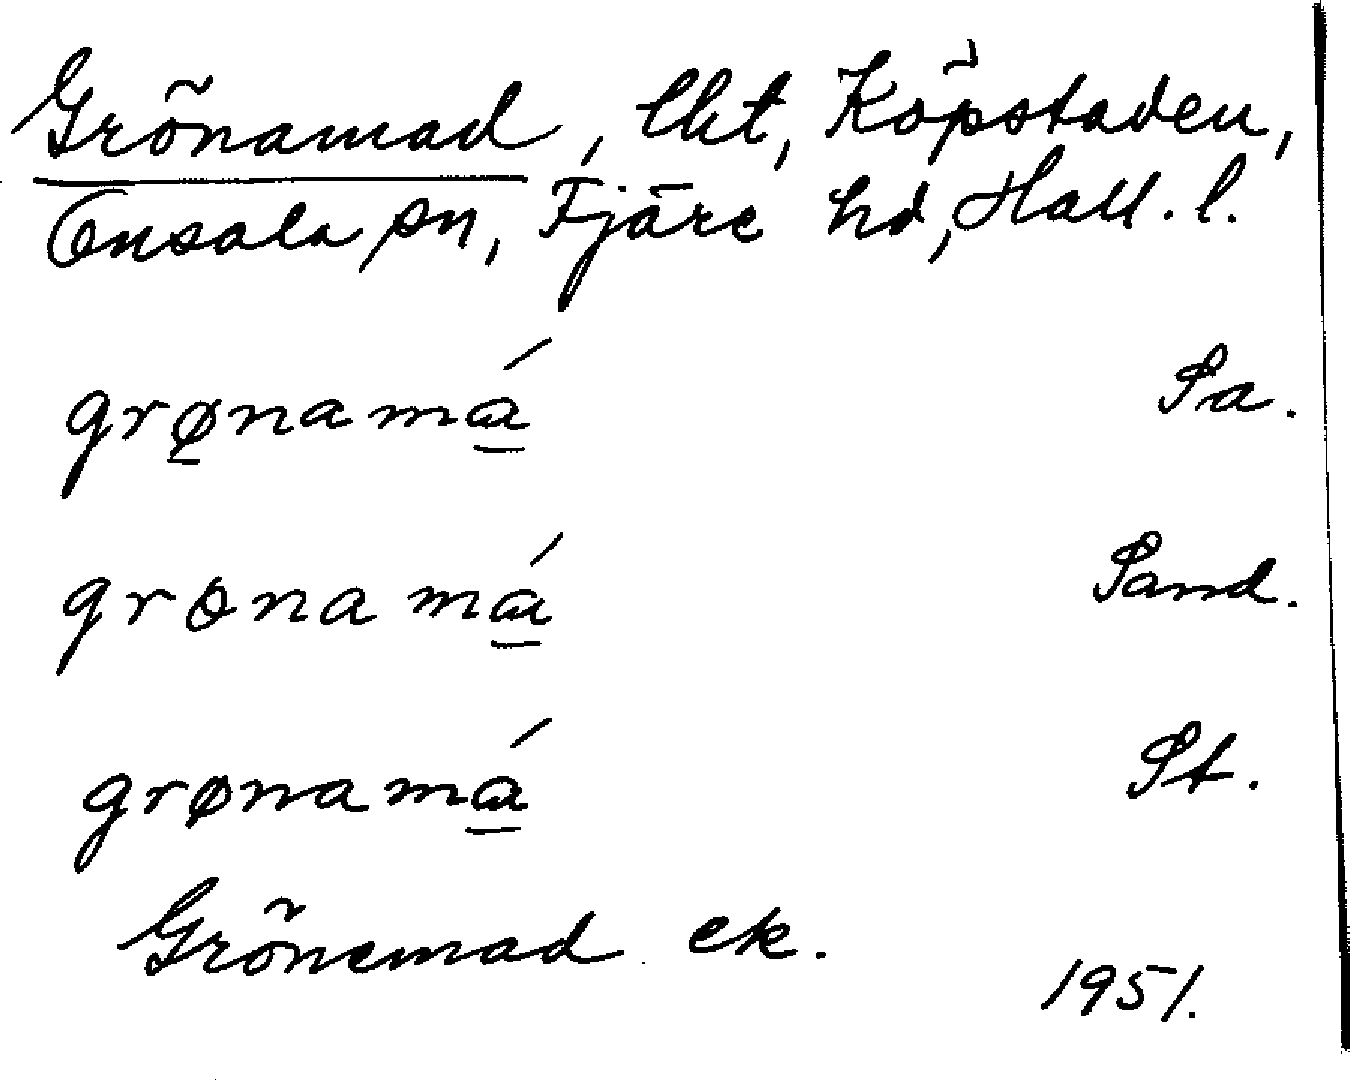 Grönamad, lht, Köpstaden,
Onsala sn, Fjäre hd, Hall. l.
grø̱namá̱ Sa.
grønamá̱ Sand.
grønamá̱ St.
Grönemad ek.
1951.